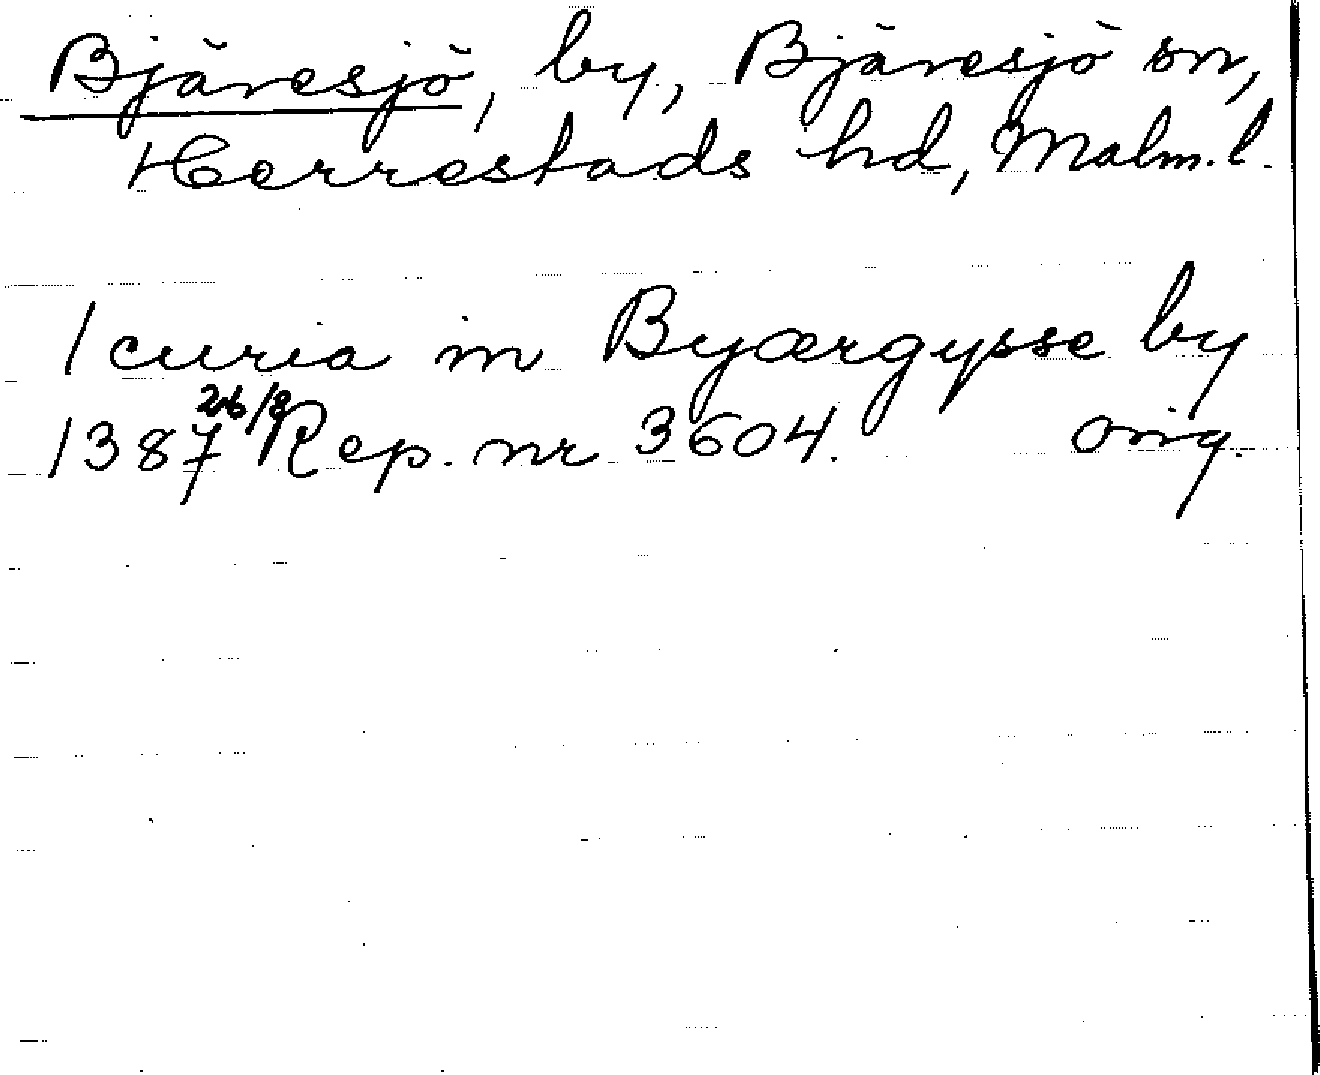 Bjäresjö, by, Bjäresjö sn,
Herrestads hd, Malm. l.
1 curia in Byærgysse by
1387 26/8 Rep. nr 3604. orig.